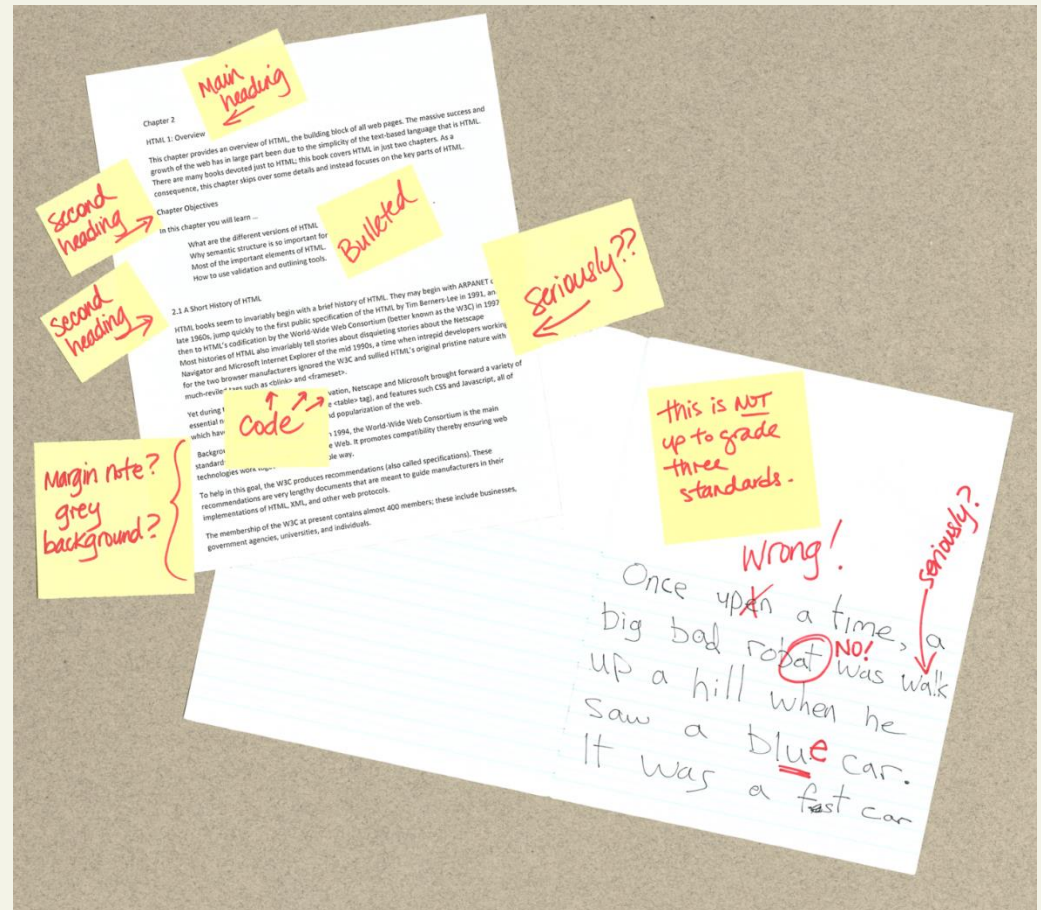 Main
heading
Chapter 2
HTML 1: Overview
This chapter provides an overview of HTML, the building block of all web pages. The massive success and
growth of the web has in large part been due to the simplicity of the text-based language that is HTML.
There are many books devoted just to HTML; this book covers HTML in just two chapters. As a
consequence, this chapter skips over some details and instead focuses on the key parts of HTML.
second
heading
Chapter Objectives
In this chapter you will learn ...
What are the different versions of HTML
Why semantic structure is so important for
Most of the important elements of HTML.
How to use validation and outlining tools.
Bulleted
second
heading
2.1 A Short History of HTML
HTML books seem to invariably begin with a brief history of HTML. They may begin with ARPANET
late 1960s, jump quickly to the first public specification of the HTML by Tim Berners-Lee in 1991, an
then to HTML's codification by the World-Wide Web Consortium (better known as the W3C) in 1997
Most histories of HTML also invariably tell stories about disquieting stories about the Netscape
Navigator and Microsoft Internet Explorer of the mid 1990s, a time when intrepid developers working
for the two browser manufacturers ignored the W3C and sullied HTML's original pristine nature with
much-reviled tags such as <blink> and <frameset>.
Seriously??
Yet during vation, Netscape and Microsoft brought forward a variety of
essential n <table> tag), and features such CSS and Javascript, all of
which hav d popularization of the web.
Code
Backgro 1994, the World-Wide Web Consortium is the main
standard e Web. It promotes compatibility thereby ensuring web
technologies work ple way.
To help in this goal, the W3C produces recommendations (also called specifications). These
recommendations are very lengthy documents that are meant to guide manufacturers in their
implementations of HTML, XML, and other web protocols.
The membership of the W3C at present contains almost 400 members; these include businesses,
government agencies, universities, and individuals.
Margin note?
grey
background?
this is NOT
up to grade
three
standards.
Wrong!
seriously?
Once upon a time, a
big bad robat was walk
NO!
up a hill when he
saw a blue car.
It was a fast car